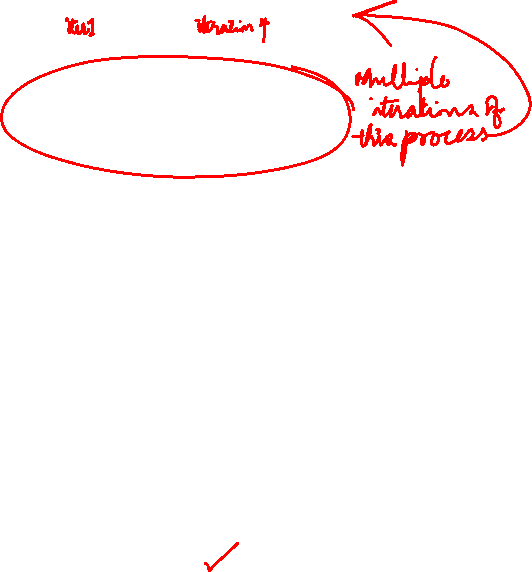 iter1 iteration ↑
Multiple
iterations of
this process